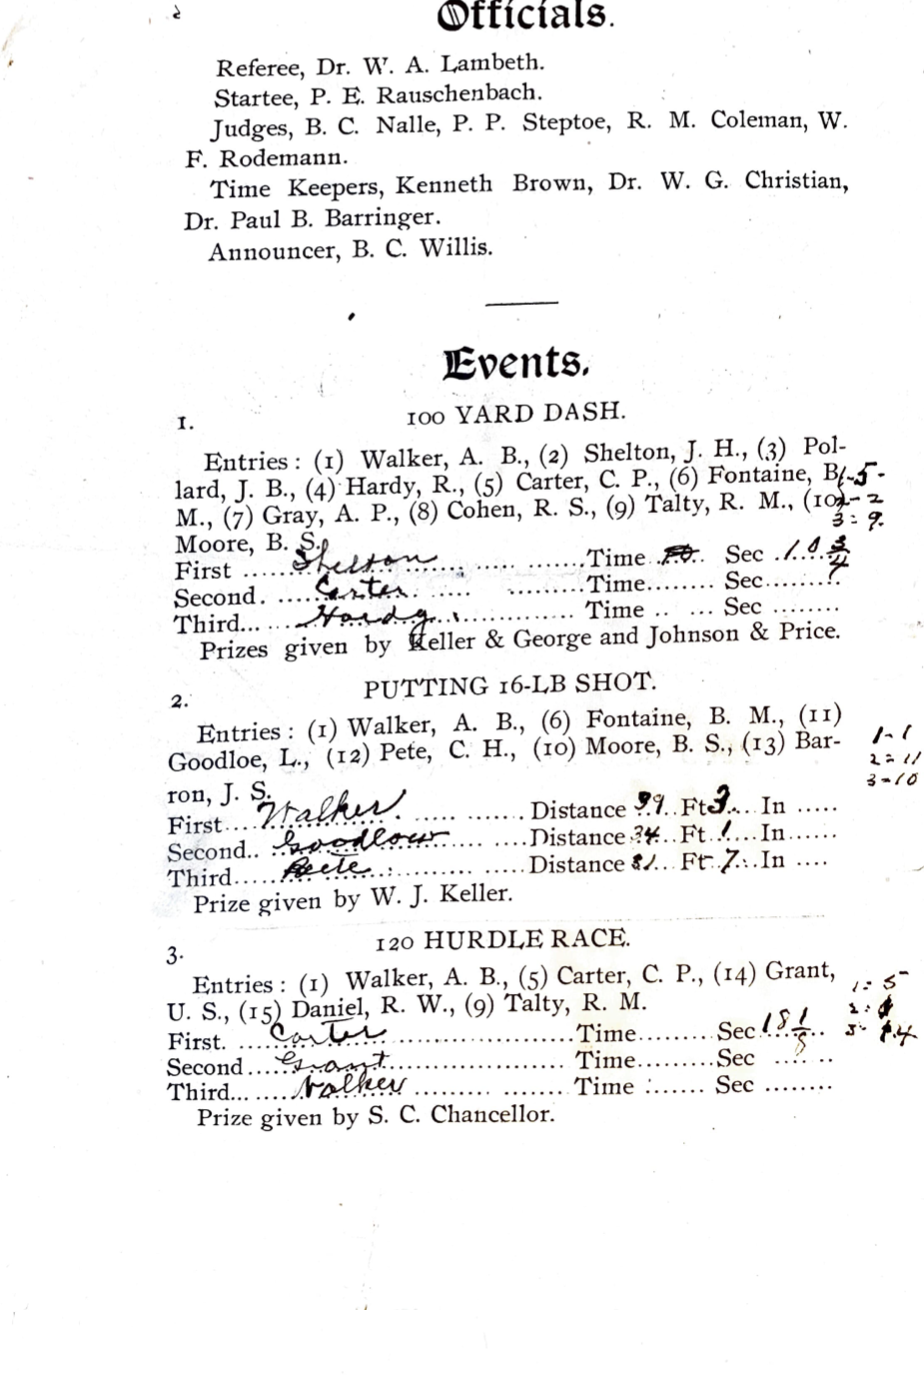 Officials.
Referee, Dr. W. A. Lambeth.
Startee, P. E. Rauschenbach.
Judges, B. C. Nalle, P. P. Steptoe, R. M. Coleman, W.
F. Rodemann.
Time Keepers, Kenneth Brown, Dr. W. G. Christian,
Dr. Paul B. Barringer.
Announcer, B. C. Willis.
Events.
1. 100 YARD DASH.
Entries: (1) Walker, A. B., (2) Shelton, J. H., (3) Pol-
lard, J. B., (4) Hardy, R., (5) Carter, C. P., (6) Fontaine, B. 1-5-
M., (7) Gray, A. P., (8) Cohen, R. S., (9) Talty, R. M., (10) 2-2
Moore, B. S. 3-9
First ...... Shelton ............Time ..... Sec ...10 3/4
Second. .... Carter. ............Time........ Sec........
Third... ... Hardy ............ Time .. ... Sec ........
Prizes given by Keller & George and Johnson & Price.
2. PUTTING 16-LB SHOT.
Entries: (1) Walker, A. B., (6) Fontaine, B. M., (11)
Goodloe, L., (12) Pete, C. H., (10) Moore, B. S., (13) Bar- 1-1
ron, J. S. 2=11
3-10
First.... Walker ...... ....... Distance 39.. Ft 3... In .....
Second.. .. Goodlow .... .... Distance 34.. Ft .1... In......
Third..... Pete ........ ..... Distance 31... Ft 7... In ....
Prize given by W. J. Keller.
3. 120 HURDLE RACE.
Entries: (1) Walker, A. B., (5) Carter, C. P., (14) Grant,
U. S., (15) Daniel, R. W., (9) Talty, R. M. 1=5
First. .... Carter ............Time........ Sec 18 1/5
Second.... Grant ............ Time........ Sec .... ..
Third... .... Walker ......... ...... Time ........ Sec ........
Prize given by S. C. Chancellor.